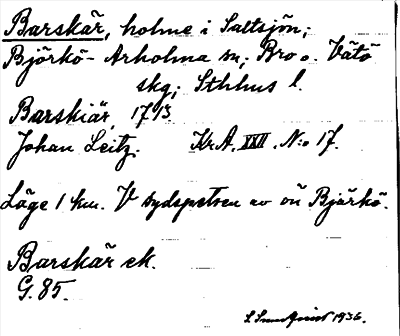 Barskär, holme i Saltsjön;
Björkö-Arholma sn; Bro o. Vätö
skg; Sthlms l.
Barskiär, 1713.
Johan Leitz. Kr.A. XXII. N:o 17.
Läge 1 km. V sydspetsen av ön Björkö.
Barskär ek.
G. 85.
1936.